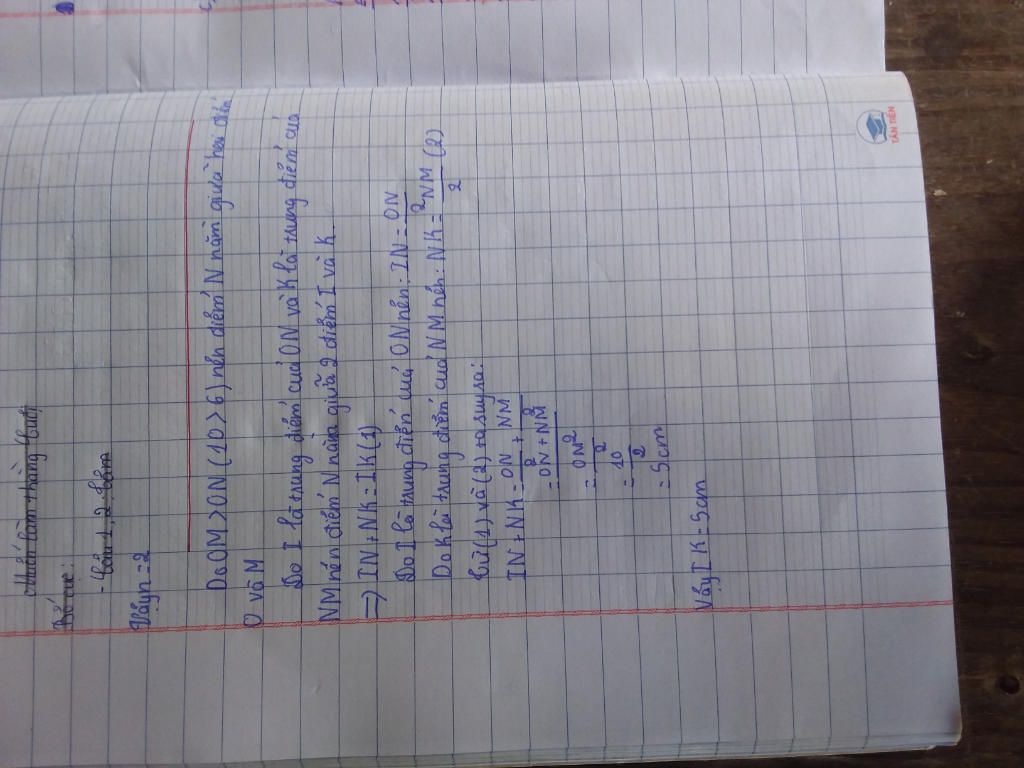 Bố cục:
- Câu 1, 2: Đêm
Vậy n = 2
Do OM > ON (10 > 6) nên điểm N nằm giữa hai điểm
O và M
Do I là trung điểm của ON và K là trung điểm của
NM nên điểm N nằm giữa 2 điểm I và K.
=> IN + NK = IK (1)
Do I là trung điểm của ON nên: IN = ON/2
Do K là trung điểm của NM nên: NK = NM/2 (2)
Từ (1) và (2) ta suy ra:
IN + NK = ON/2 + NM/2
= ON + NM/2
= OM/2
= 10/2
= 5cm
Vậy IK = 5cm
TÂN TIẾN